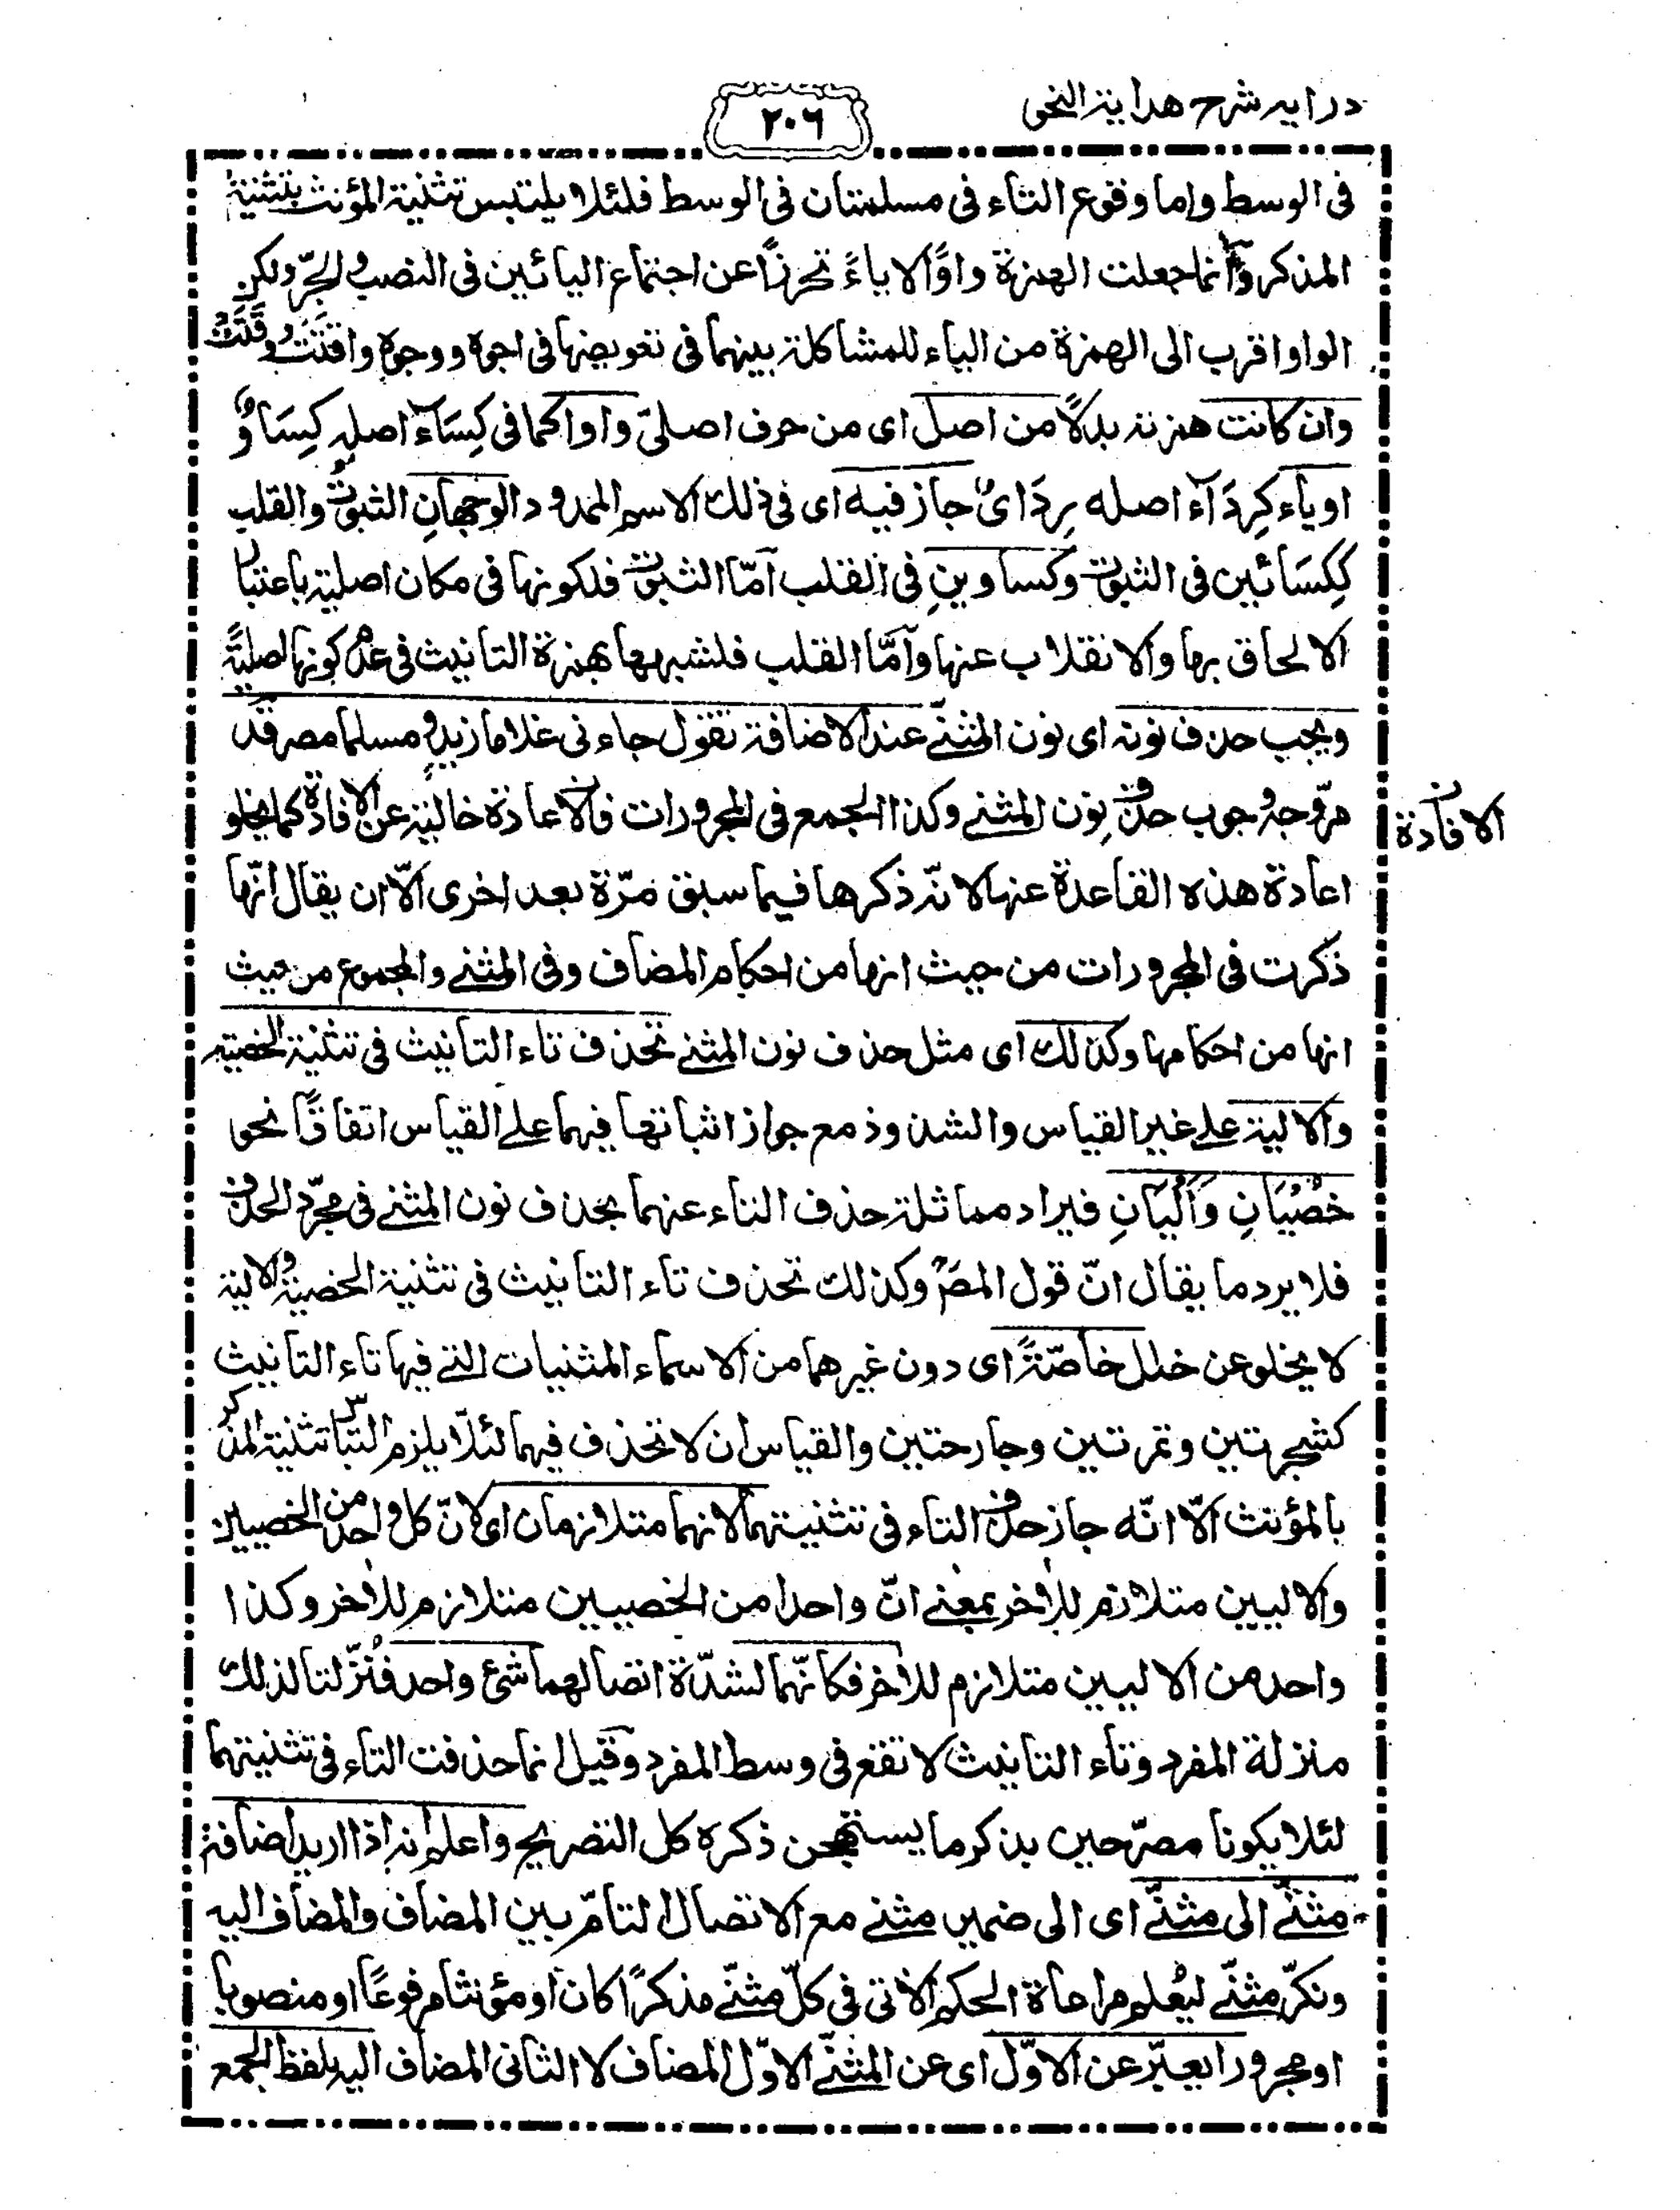 درايه شرح هداية النحو
٢٠٦
فى الوسط واما وقوع التاء فى مسلمتان فى الوسط فلئلا يلتبس تثنية المؤنث بتثنية
المذكر وانما جعلت الهمزة واوًا لا ياءً تحرزًا عن اجتماع اليائين فى النصب والجرّ ولكن
الواو اقرب الى الهمزة من الياء للمشاكلة بينهما فى تعويضها فى اجوه ووجوه واقتت ووقتت
وان كانت همزته بدلًا من اصل اى من حرف اصلىّ واوا كما فى كِسَاء اصله كِسَاوٌ
او ياء كرِدَآء اصله رِدَاىٌ جاز فيه اى فى ذلك الاسم الممدود الوجهانِ الثبوت والقلب
ككِسَائين فى الثبوت وكساوينِ فى القلب اَمّا الثبوت فلكونها فى مكان اصلية باعتبار
الالحاق بها والانقلاب عنها واَمَّا القلب فلشبهها بهمزة التانيث فى عدم كونها اصليةً
ويجب حذف نونه اى نون المثنّے عند الاضافة تقول جاءنى غلاما زيد ومسلما مصر قد
مرّ وجه وجوب حذف نون المثنے وكذا الجمع فى المجرورات فالاعادة خالية عن الافادة كما يخلو
الافادة ن
اعادة هذه القاعدة عنها لانّه ذكرها فيما سبق مرّة بعد اخرى الّا ان يقال انّها
ذكرت فى المجرورات من حيث انها من احكام المضاف وفى المثنے والمجموع من حيث
انها من احكامها وكذلك اى مثل حذف نون المثنے تحذف تاء التانيث فى تثنية الخصية
والالية علے غير القياس والشذوذ مع جواز اثباتها فيهما علے القياس اتفاقًا نحو
خُصْيَانِ وَاَلْيَانِ فيراد مماثلة حذف التاء عنهما بحذف نون المثنے فى مجرّد الحذف
فلا يرد ما يقال انّ قول المصؒ وكذلك تحذف تاء التانيث فى تثنية الخصية والالية
لا يخلو عن خلل خاصّةً اى دون غيرهما من الاسماء المثنيات التے فيها تاء التانيث
كشجرتين وتمرتين وجارحتين والقياس ان لا تحذف فيهما لئلّا يلزم التباس تثنية المذكر
بالمؤنث الّا انّه جاز حذف التاء فى تثنيتهما لانهما متلازمان اى لانّ كل واحد من الخصيين
والاليين متلازم للاٰخر بمعنے انّ واحدا من الخصيين متلازم للاٰخر وكذا
واحد من الاليين متلازم للاٰخر فكانّهما لشدّة اتصالهما شئ واحد فنُزّلتا لذلك
منزلة المفرد وتاء التانيث لا تقع فى وسط المفرد وقيل انما حذفت التاء فى تثنيتهما
لئلا يكونا مصرّحين بذكر ما يستهجن ذكره كل التصريح واعلم انه اذا اريد اضافة
مثنّے الى مثنّے اى الى ضمير مثنے مع الاتصال التامّ بين المضاف والمضاف اليه
ونكّر مثنّے ليُعلم مراعاة الحكم الاٰتى فى كلّ مثنّے مذكرًا كان او مؤنثا مرفوعًا او منصوبا
او مجرورا يعبّر عن الاوّل اى عن المثنّے الاوّل المضاف لا الثانى المضاف اليه بلفظ الجمع